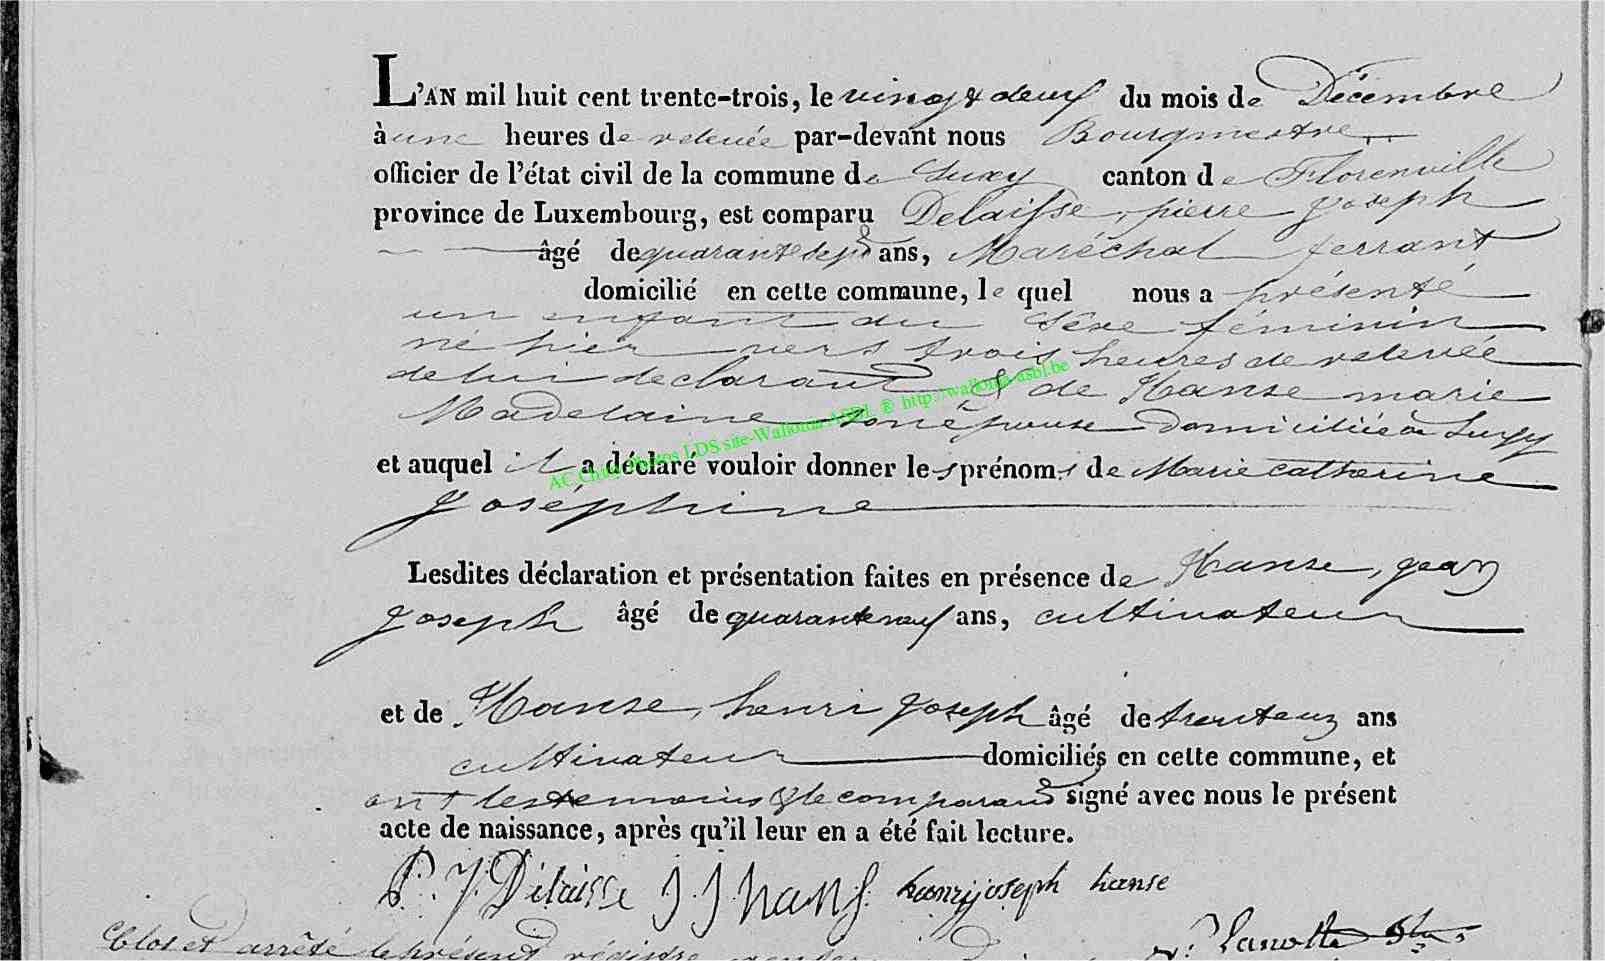 L'AN mil huit cent trente-trois, le vingt deux du mois de Décembre
à une heures de relevée par-devant nous Bourgmestre
officier de l'état civil de la commune de Suxy canton de Florenville
province de Luxembourg, est comparu Delaisse, pierre joseph
âgé de quarante sept ans, Maréchal ferrant
domicilié en cette commune, le quel nous a présenté
un enfant du Sexe féminin
né hier vers trois heures de relevée
de lui declarant & de Hanse marie
Madelaine son épouse domiciliée à Suxy
et auquel il a déclaré vouloir donner les prénoms de Marie catherine
joséphine
AC Chiny Photos LDS site-Wallonia ASBL ® http://wallonia-asbl.be
Lesdites déclaration et présentation faites en présence de Hanse, jean
joseph âgé de quarante neuf ans, cultivateur
et de Hanse, henri joseph âgé de ans
cultivateur domiciliés en cette commune, et
ont les temoins & le comparant signé avec nous le présent
acte de naissance, après qu'il leur en a été fait lecture.
P. J. Delaisse J J hans henry joseph hanse
Clos et arrêté le présent régistre